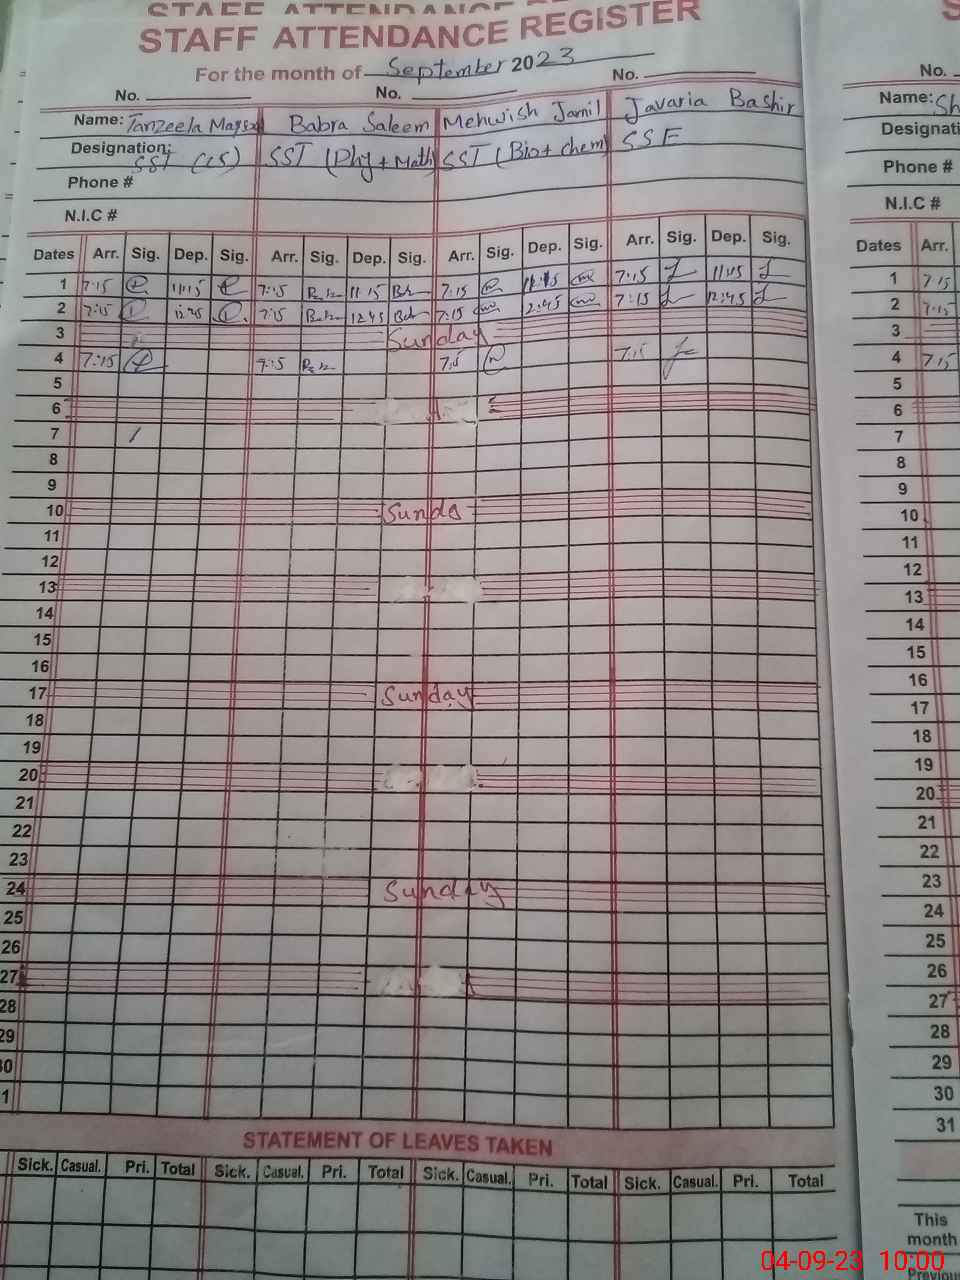 STAFF ATTENDANCE REGISTER
For the month of September 2023
No. No. No.
Name: Tanzeela Babra Saleem Mehwish Jamil Javaria Bashir
Designation: SST (CS) SST (Phy + Math) SST (Bio + chem) SSE
Phone #
N.I.C #
Dates Arr. Sig. Dep. Sig. Arr. Sig. Dep. Sig. Arr. Sig. Dep. Sig. Arr. Sig. Dep. Sig.
1 7:15 11:15 7:15 11:15 7:15 11:15 7:15 11:15
2 7:15 12:45 7:15 12:45 7:15 12:45 7:15 12:45
3 Sunday
4 7:15 7:15 7:15 7:15
5
6
7
8
9
10 Sunda
11
12
13
14
15
16
17 Sunday
18
19
20
21
22
23
24 Sunday
25
26
27
28
29
30
1
STATEMENT OF LEAVES TAKEN
Sick. Casual. Pri. Total Sick. Casual. Pri. Total Sick. Casual. Pri. Total Sick. Casual. Pri. Total
No.
Name: Sh
Designati
Phone #
N.I.C #
Dates Arr.
1 7:15
2 7:15
3
4 7:15
5
6
7
8
9
10
11
12
13
14
15
16
17
18
19
20
21
22
23
24
25
26
27
28
29
30
31
This
month
Previous
04-09-23 10:00